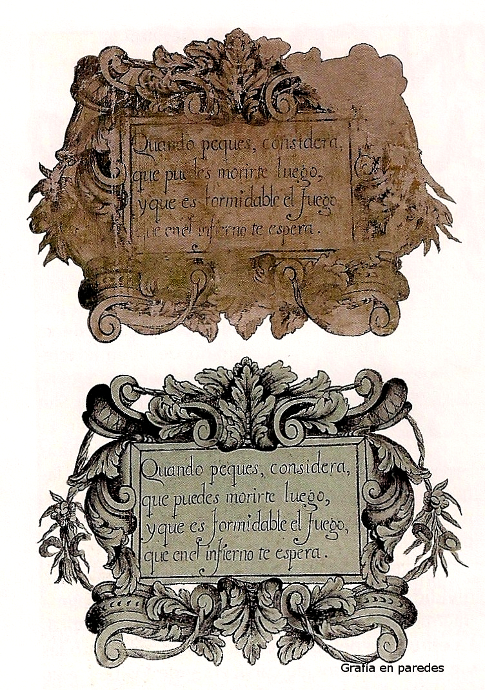 Quando peques, considera,
que puedes morirte luego,
y que es formidable el fuego
que en el infierno te espera.
Quando peques, considera,
que puedes morirte luego,
y que es formidable el fuego,
que en el infierno te espera.
Grafía en paredes